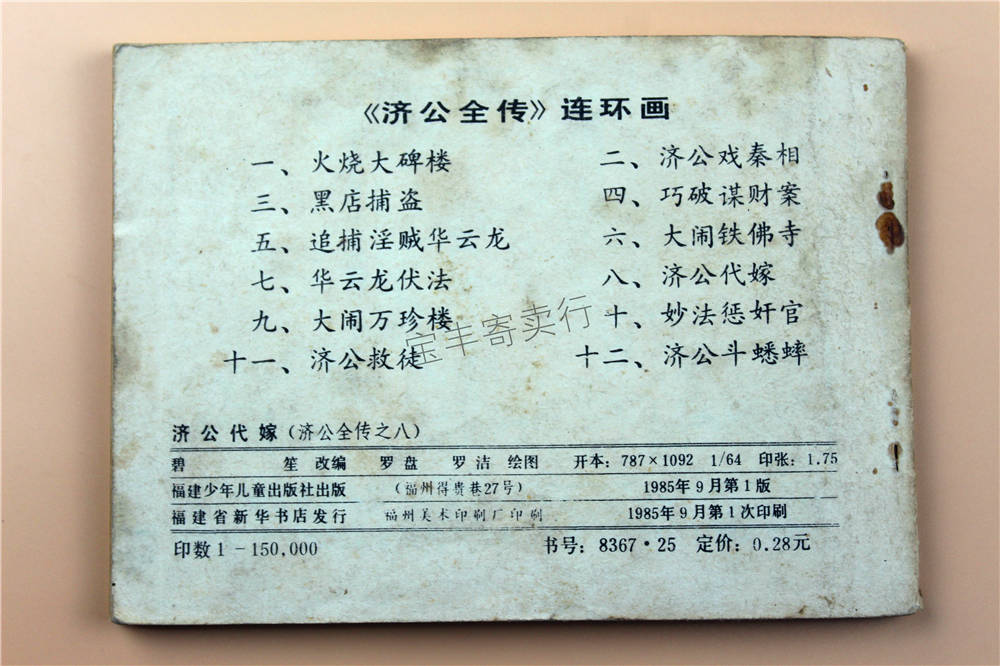 《济公全传》连环画
一、火烧大碑楼 二、济公戏秦相
三、黑店捕盗 四、巧破谋财案
五、追捕淫贼华云龙 六、大闹铁佛寺
七、华云龙伏法 八、济公代嫁
九、大闹万珍楼 十、妙法惩奸官
十一、济公救徒 十二、济公斗蟋蟀
宝丰寄卖行
济公代嫁(济公全传之八)
碧笙 改编 罗盘 罗洁 绘图 开本:787×1092 1/64 印张:1.75
福建少年儿童出版社出版 (福州得贵巷27号) 1985年9月第1版
福建省新华书店发行 福州美术印刷厂印刷 1985年9月第1次印刷
印数1-150,000 书号:8367·25 定价:0.28元